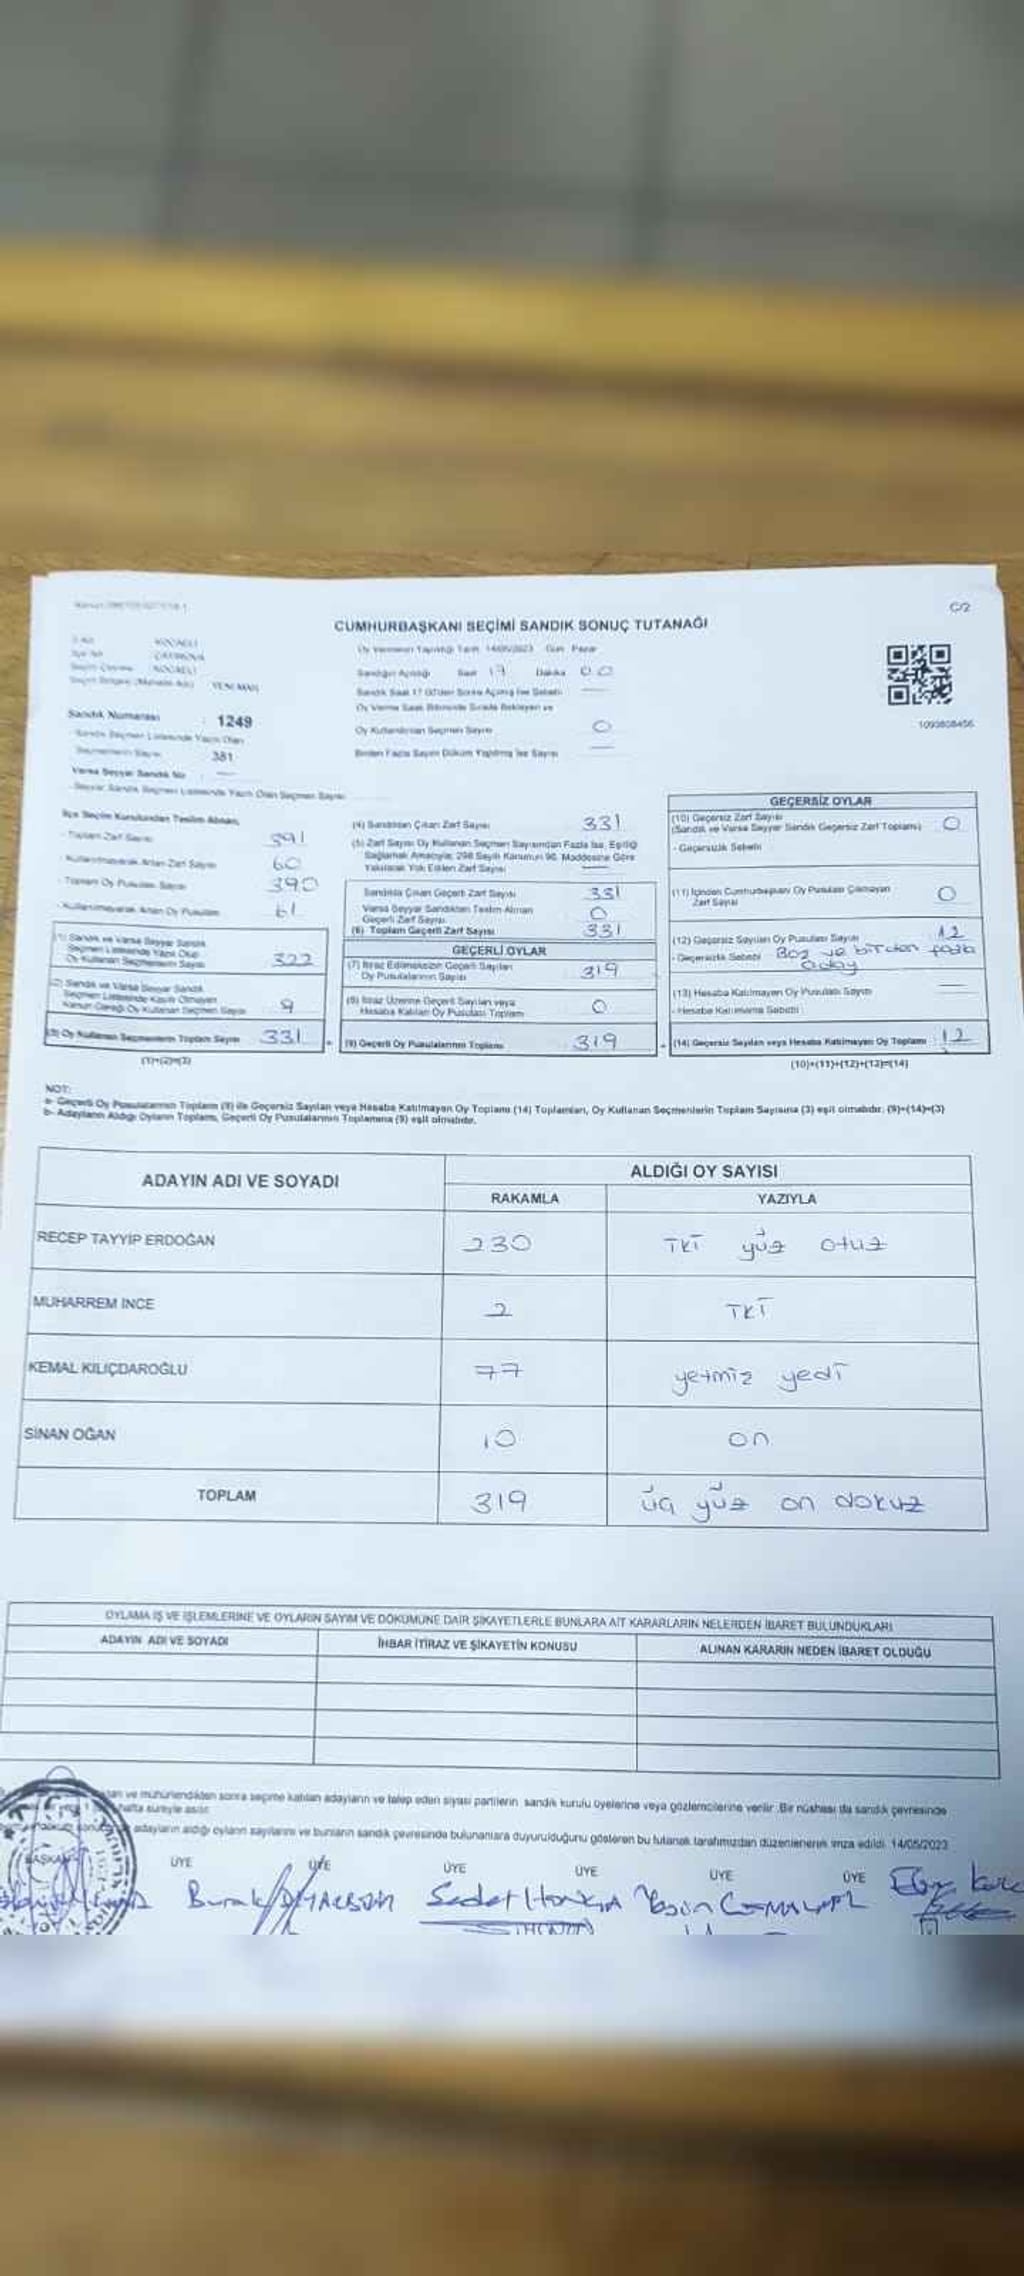 C/2
CUMHURBAŞKANI SEÇİMİ SANDIK SONUÇ TUTANAĞI
Oy Vermenin Yapıldığı Tarih 14/05/2023 Gün Pazar
KOCAELİ
ÇAYIROVA
KOCAELİ
YENİ MAH.
Sandığın Açıldığı Saat 17 Dakika 00
Oy Kullandırılan Seçmen Sayısı 0
1093808456
Sandık Numarası : 1249
Seçmenlerin Sayısı 381
Varsa Seyyar Sandık No : —
- Seyyar Sandık Seçmen Listesinde Yazılı Olan Seçmen Sayısı
İlçe Seçim Kurulundan Teslim Alınan;
- Toplam Zarf Sayısı 391
- Kullanılmayarak Artan Zarf Sayısı 60
- Toplam Oy Pusulası Sayısı 390
- Kullanılmayarak Artan Oy Pusulası 61
(1) Sandık ve Varsa Seyyar Sandık
Seçmen Listesinde Yazılı Olup
Oy Kullanan Seçmenlerin Sayısı 322
(2) Sandık ve Varsa Seyyar Sandık
Seçmen Listesinde Kayıtlı Olmayan
Kanun Gereği Oy Kullanan Seçmen Sayısı 9
(3) Oy Kullanan Seçmenlerin Toplam Sayısı 331
(1)+(2)=(3)
(4) Sandıktan Çıkan Zarf Sayısı 331
(5) Zarf Sayısı Oy Kullanan Seçmen Sayısından Fazla İse, Eşitliği
Sağlamak Amacıyla; 298 Sayılı Kanunun 98. Maddesine Göre
Yakılarak Yok Edilen Zarf Sayısı —
Sandıkta Çıkan Geçerli Zarf Sayısı 331
Varsa Seyyar Sandıktan Teslim Alınan
Geçerli Zarf Sayısı 0
(6) Toplam Geçerli Zarf Sayısı 331
GEÇERLİ OYLAR
(7) İtiraz Edilmeksizin Geçerli Sayılan
Oy Pusulalarının Sayısı 319
(8) İtiraz Üzerine Geçerli Sayılan veya
Hesaba Katılan Oy Pusulası Toplamı 0
(9) Geçerli Oy Pusulalarının Toplamı 319
GEÇERSİZ OYLAR
(10) Geçersiz Zarf Sayısı
(Sandık ve Varsa Seyyar Sandık Geçersiz Zarf Toplamı) 0
- Geçersizlik Sebebi
(11) İçinden Cumhurbaşkanı Oy Pusulası Çıkmayan
Zarf Sayısı 0
(12) Geçersiz Sayılan Oy Pusulası Sayısı 12
- Geçersizlik Sebebi Boş ve birden fazla
aday
(13) Hesaba Katılmayan Oy Pusulası Sayısı —
- Hesaba Katılmama Sebebi
(14) Geçersiz Sayılan veya Hesaba Katılmayan Oy Toplamı 12
(10)+(11)+(12)+(13)=(14)
NOT:
a- Geçerli Oy Pusulalarının Toplamı (9) ile Geçersiz Sayılan veya Hesaba Katılmayan Oy Toplamı (14) Toplamları, Oy Kullanan Seçmenlerin Toplam Sayısına (3) eşit olmalıdır. (9)+(14)=(3)
b- Adayların Aldığı Oyların Toplamı, Geçerli Oy Pusulalarının Toplamına (9) eşit olmalıdır.
ADAYIN ADI VE SOYADI
ALDIĞI OY SAYISI
RAKAMLA YAZIYLA
RECEP TAYYİP ERDOĞAN 230 İki yüz otuz
MUHARREM İNCE 2 İki
KEMAL KILIÇDAROĞLU 77 yetmiz yedi
SİNAN OĞAN 10 on
TOPLAM 319 üç yüz on dokuz
OYLAMA İŞ VE İŞLEMLERİNE VE OYLARIN SAYIM VE DÖKÜMÜNE DAİR ŞİKAYETLERLE BUNLARA AİT KARARLARIN NELERDEN İBARET BULUNDUKLARI
ADAYIN ADI VE SOYADI İHBAR İTİRAZ VE ŞİKAYETİN KONUSU ALINAN KARARIN NEDEN İBARET OLDUĞU
ve mühürlendikten sonra seçime katılan adayların ve talep eden siyasi partilerin sandık kurulu üyelerine veya gözlemcilerine verilir. Bir nüshası da sandık çevresinde
hafta süreyle asılır.
adayların aldığı oyların sayılarını ve bunların sandık çevresinde bulunanlara duyurulduğunu gösteren bu tutanak tarafımızdan düzenlenerek imza edildi. 14/05/2023
BAŞKAN ÜYE ÜYE ÜYE ÜYE ÜYE ÜYE
Burak Sedat Yasin